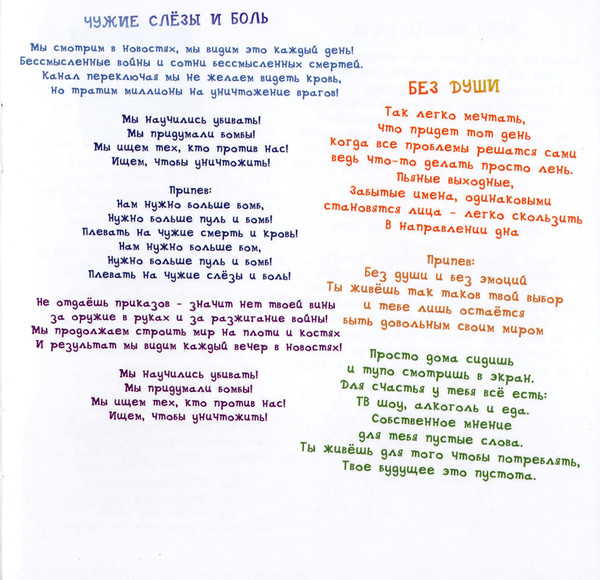 ЧУЖИЕ СЛЁЗЫ И БОЛЬ
Мы смотрим в новостях, мы видим это каждый день!
Бессмысленные войны и сотни бессмысленных смертей.
Канал переключая мы не желаем видеть кровь,
Но тратим миллионы на уничтожение врагов!
Мы научились убивать!
Мы придумали бомбы!
Мы ищем тех, кто против нас!
Ищем, чтобы уничтожить!
Припев:
Нам нужно больше бомб,
Нужно больше пуль и бомб!
Плевать на чужие смерть и кровь!
Нам нужно больше бом,
Нужно больше пуль и бомб!
Плевать на чужие слёзы и боль!
Не отдаёшь приказов - значит нет твоей вины
за оружие в руках и за разжигание войны!
Мы продолжаем строить мир на плоти и костях
И результат мы видим каждый вечер в новостях!
Мы научились убивать!
Мы придумали бомбы!
Мы ищем тех, кто против нас!
Ищем, чтобы уничтожить!
БЕЗ ДУШИ
Так легко мечтать,
что придет тот день
когда все проблемы решатся сами
ведь что-то делать просто лень.
Пьяные выходные,
Забытые имена, одинаковыми
становятся лица - легко скользить
В направлении дна
Припев:
Без души и без эмоций
Ты живёшь так таков твой выбор
и тебе лишь остаётся
быть довольным своим миром
Просто дома сидишь
и тупо смотришь в экран.
Для счастья у тебя всё есть:
ТВ шоу, алкоголь и еда.
Собственное мнение
для тебя пустые слова.
Ты живёшь для того чтобы потреблять,
Твое будущее это пустота.